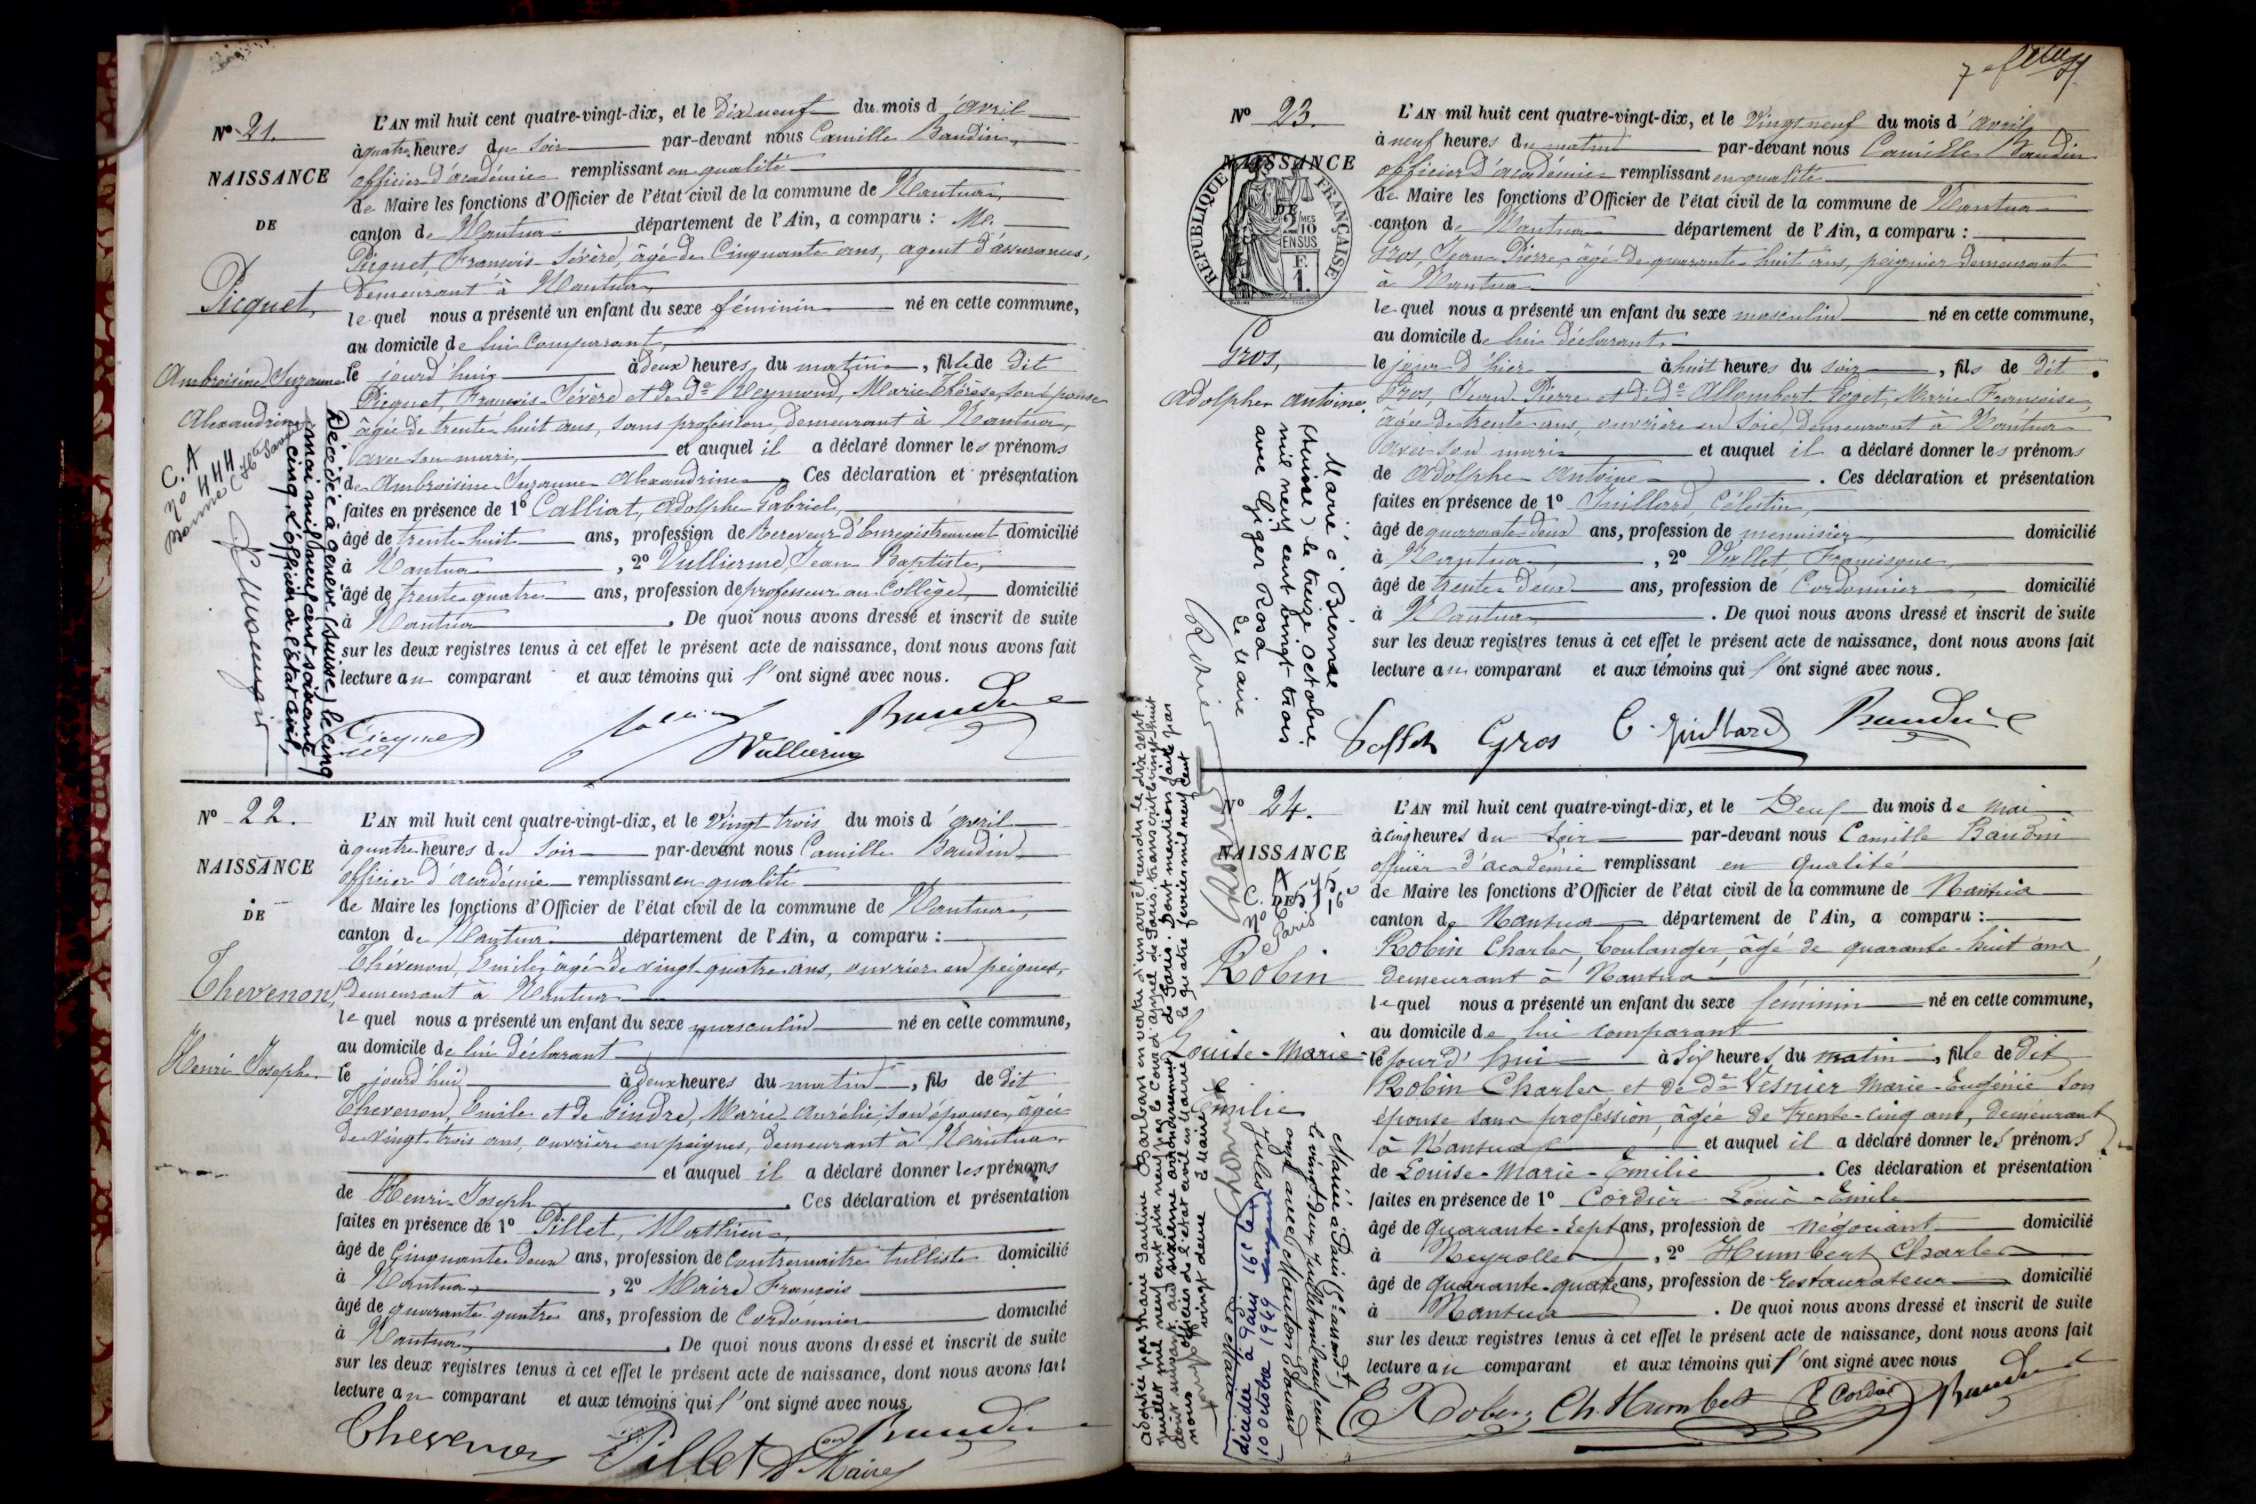 Nº 21.
NAISSANCE
DE
Picquet,
Ambroisine Suzanne
Alexandrine
L'AN mil huit cent quatre-vingt-dix, et le Dix neuf du mois d'avril
à quatre heures du soir par-devant nous Camille Baudin,
officier d'académie remplissant en qualité
de Maire les fonctions d'Officier de l'état civil de la commune de Nantua,
canton de Nantua département de l'Ain, a comparu : Mr.
Picquet, François Sévère, âgé de Cinquante ans, agent d'assurances,
demeurant à Nantua,
lequel nous a présenté un enfant du sexe féminin né en cette commune,
au domicile de lui Comparant,
le jourd'hui à deux heures du matin, fille de dit
Picquet, François Sévère et de de Reymond, Marie Thérèse, son épouse
âgée de trente huit ans, sans profession, demeurant à Nantua,
avec son mari, et auquel il a déclaré donner les prénoms
de Ambroisine Suzanne Alexandrine. Ces déclaration et présentation
faites en présence de 1º Calliat, Adolphe Gabriel,
âgé de trente huit ans, profession de Receveur d'Enregistrement domicilié
à Nantua, 2º Vullierme, Jean Baptiste,
âgé de trente quatre ans, profession de professeur au Collège, domicilié
à Nantua. De quoi nous avons dressé et inscrit de suite
sur les deux registres tenus à cet effet le présent acte de naissance, dont nous avons fait
lecture au comparant et aux témoins qui l'ont signé avec nous.
C. A
Nº 444
Décédée à Genève (Suisse) le cinq
mai mil neuf cent soixante
cinq, L'officier de l'Etat civil,
Vullierme
Baudin
Nº 22.
NAISSANCE
DE
Thevenon,
Henri Joseph.
L'AN mil huit cent quatre-vingt-dix, et le Vingt trois du mois d'avril
à quatre heures du soir par-devant nous Camille Baudin
officier d'académie remplissant en qualité
de Maire les fonctions d'Officier de l'état civil de la commune de Nantua,
canton de Nantua département de l'Ain, a comparu :
Thévenon, Emile, âgé de vingt quatre ans, ouvrier en peignes,
demeurant à Nantua
lequel nous a présenté un enfant du sexe masculin né en cette commune,
au domicile de lui déclarant
le jourd'hui à deux heures du matin, fils de dit
Thevenon, Emile et de Cindre, Marie Aurélie, son épouse, âgée
de vingt trois ans, ouvrière en peignes, demeurant à Nantua
et auquel il a déclaré donner les prénoms
de Henri Joseph. Ces déclaration et présentation
faites en présence de 1º Pillet, Mathieu,
âgé de Cinquante deux ans, profession de Contremaitre tulliste domicilié
à Nantua, 2º Maire François
âgé de quarante quatre ans, profession de Cordonnier domicilié
à Nantua. De quoi nous avons dressé et inscrit de suite
sur les deux registres tenus à cet effet le présent acte de naissance, dont nous avons fait
lecture au comparant et aux témoins qui l'ont signé avec nous
Thevenon Pillet Maire Baudin
Nº 23.
NAISSANCE
DE
RÉPUBLIQUE FRANÇAISE
2 MES
10
EN SUS
F.
1.
Gros,
Adolphe Antoine.
L'AN mil huit cent quatre-vingt-dix, et le Vingt neuf du mois d'avril
à neuf heures du matin par-devant nous Camille Baudin
officier d'académie remplissant en qualité
de Maire les fonctions d'Officier de l'état civil de la commune de Nantua
canton de Nantua département de l'Ain, a comparu :
Gros, Jean Pierre, âgé de quarante huit ans, peignier demeurant
à Nantua
lequel nous a présenté un enfant du sexe masculin né en cette commune,
au domicile de lui déclarant.
le jour d'hier à huit heures du soir, fils de dit
Gros, Jean Pierre et de de Allombert Goget, Marie Françoise,
âgée de trente ans, ouvrière en soie, demeurant à Nantua
avec son mari et auquel il a déclaré donner les prénoms
de Adolphe Antoine. Ces déclaration et présentation
faites en présence de 1º Juillard, Célestin,
âgé de quarante deux ans, profession de menuisier domicilié
à Nantua, 2º Vallet, Francisque,
âgé de trente deux ans, profession de Cordonnier domicilié
à Nantua. De quoi nous avons dressé et inscrit de suite
sur les deux registres tenus à cet effet le présent acte de naissance, dont nous avons fait
lecture au comparant et aux témoins qui l'ont signé avec nous.
Marié à Bienne
(Suisse) le treize octobre
mil neuf cent vingt trois
avec Giger Rosa
Le Maire
Gros C. Juillard Baudin
Nº 24.
NAISSANCE
DE
Robin
Louise-Marie-
Emilie
L'AN mil huit cent quatre-vingt-dix, et le Deux du mois de mai
à cinq heures du soir par-devant nous Camille Baudin
officier d'académie remplissant en qualité
de Maire les fonctions d'Officier de l'état civil de la commune de Nantua
canton de Nantua département de l'Ain, a comparu :
Robin Charles, boulanger, âgé de quarante-huit ans,
demeurant à Nantua
lequel nous a présenté un enfant du sexe féminin né en cette commune,
au domicile de lui comparant
le jourd'hui à six heures du matin, fille de dit
Robin Charles et de de Vesnier Marie-Eugénie son
épouse sans profession, âgée de trente-cinq ans, demeurant
à Nantua et auquel il a déclaré donner les prénoms
de Louise-Marie-Emilie. Ces déclaration et présentation
faites en présence de 1º Cordier Louis-Emile
âgé de quarante-sept ans, profession de négociant domicilié
à Neyrolles, 2º Humbert Charles
âgé de quarante-quatre ans, profession de restaurateur domicilié
à Nantua. De quoi nous avons dressé et inscrit de suite
sur les deux registres tenus à cet effet le présent acte de naissance, dont nous avons fait
lecture au comparant et aux témoins qui l'ont signé avec nous
Mariée à Paris
le vingt deux juillet mil neuf cent
onze avec
décédée à Paris 19e le
10 octobre 1949
Adoptée par Marie Pauline Barban en vertu d'un arrêt rendu le dix sept
E. Robin Ch. Humbert E. Cordier Baudin